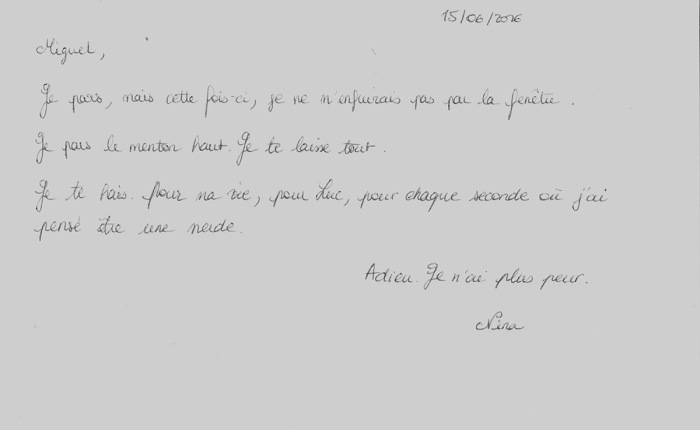 15/06/2016
Miguel,
Je pars, mais cette fois-ci, je ne m'enfuirais pas par la fenêtre.
Je pars le menton haut. Je te laisse tout.
Je te hais. Pour ma vie, pour Luc, pour chaque seconde où j'ai
pensé être une merde.
Adieu. Je n'ai plus peur.
Nina